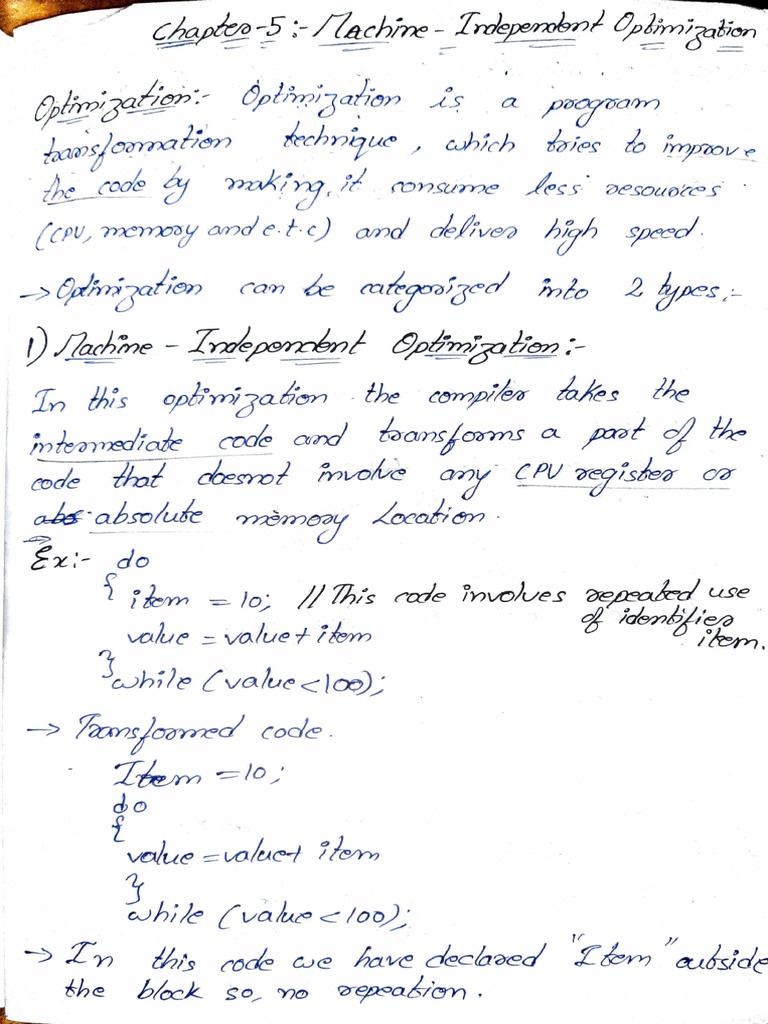 Chapter-5:- Machine - Independent Optimization
Optimization:- Optimization is a program
transformation technique, which tries to improve
the code by making it consume less resources
(CPU, memory and e.t.c) and deliver high speed.
→ Optimization can be categorized into 2 types:-
1) Machine - Independent Optimization:-
In this optimization the compiler takes the
intermediate code and transforms a part of the
code that doesnot involve any CPU register or
absolute memory Location.
Ex:- do
{ item = 10; // This code involves repeated use
of identifier
value = value + item
item.
} while (value < 100);
→ Transformed code.
Item = 10;
do
{
value = value + item
}
while (value < 100);
→ In this code we have declared "Item" outside
the block so, no repeation.